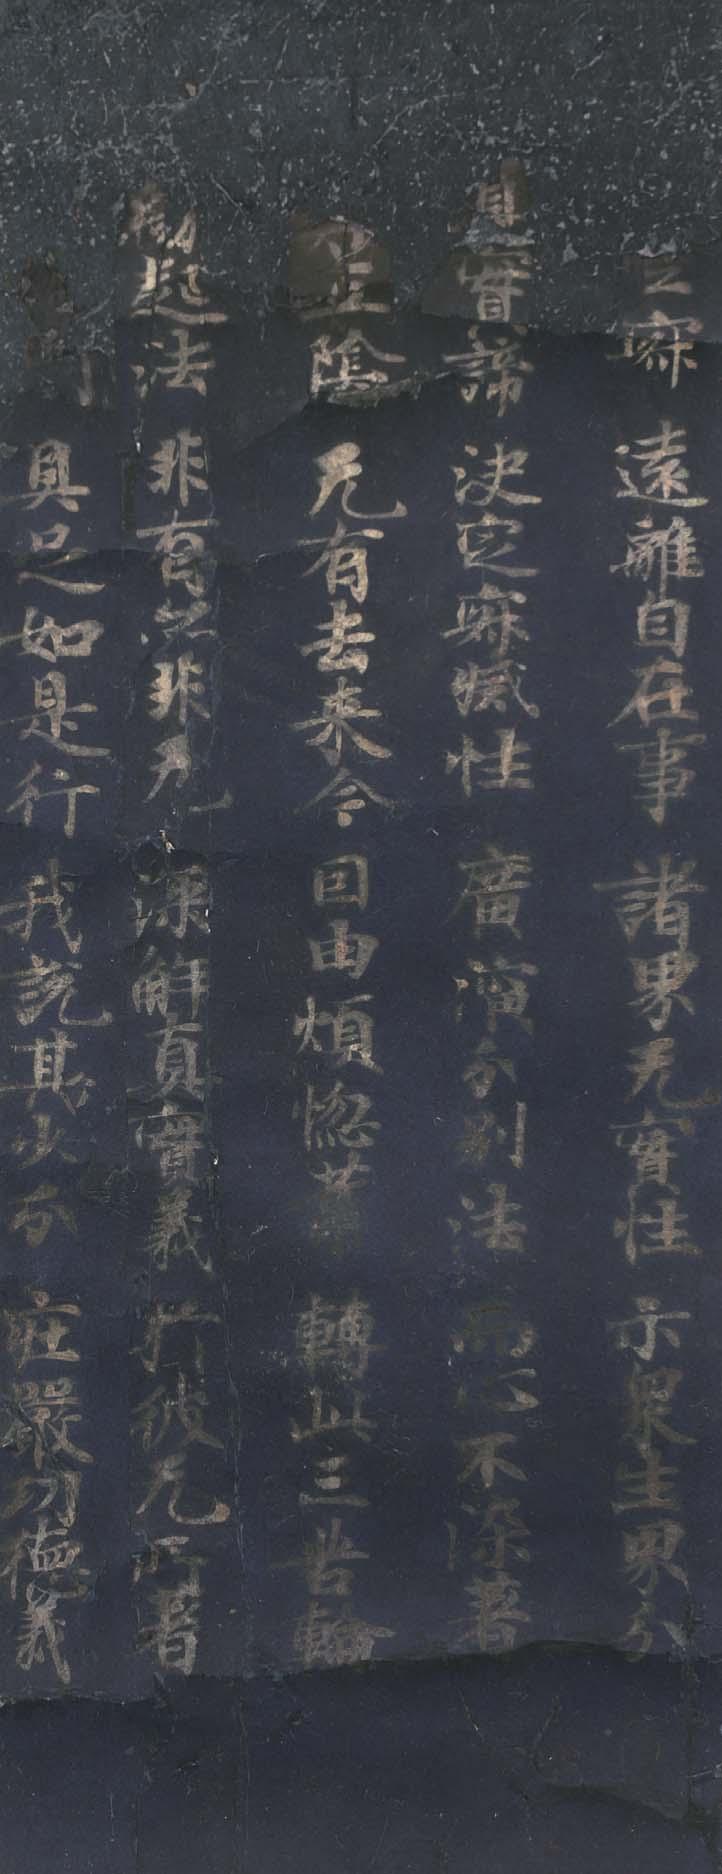 寂 遠離自在事 諸界无實性 示衆生界分
實諦 決定寂滅性 廣演分別法 而心不染著
五陰 无有去来今 因由煩惱業 轉此三苦輪
起法 非有亦非无 深解真實義 於彼无所著
具足如是行 我說其少分 莊嚴功德義